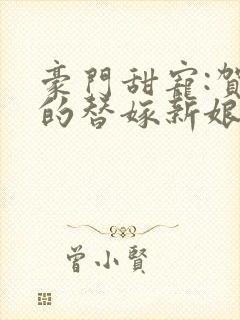 豪門甜寵:賀
的替嫁新娘
曾小賢